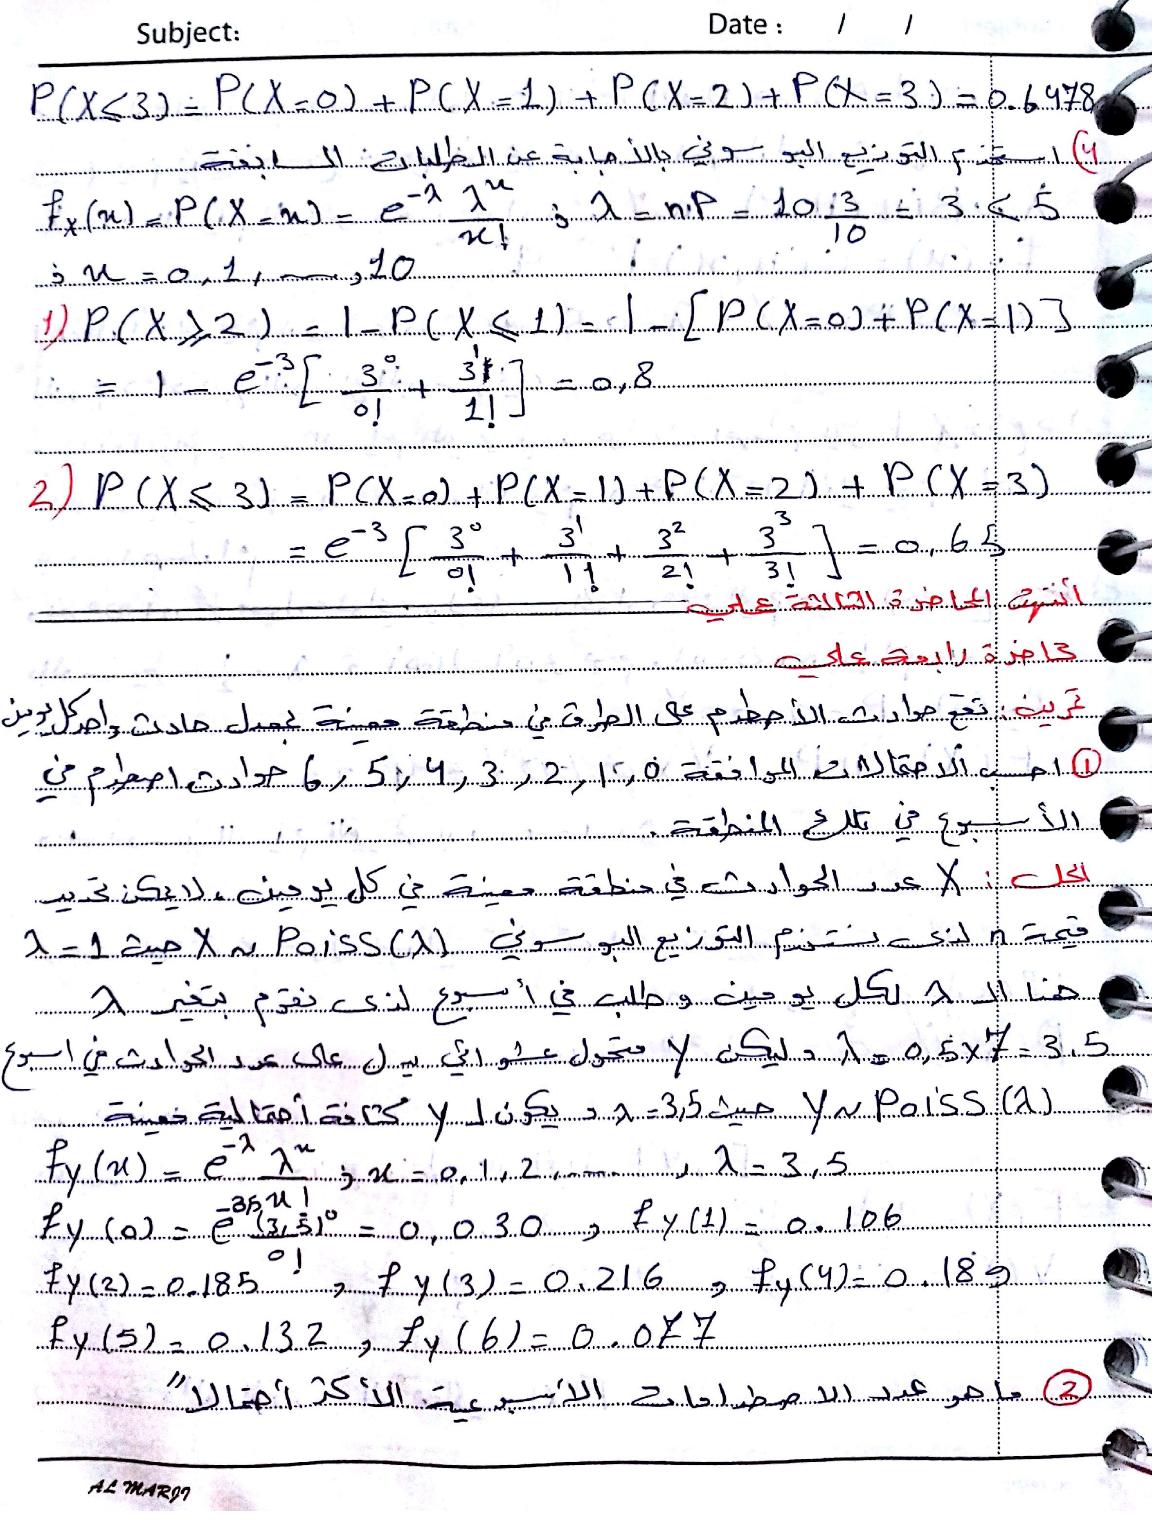 Subject:
Date : / /
P(X≤3) = P(X=0) + P(X=1) + P(X=2) + P(X=3) = 0.6478
4) استخدم التوزيع البوسوني بالأجابة عن الطلبات السابقة
fx(x) = P(X=x) = e^-λ λ^x / x! ; λ = n.P = 10 . 3/10 = 3 < 5
; x = 0, 1, ..., 10
1) P(X ≥ 2) = 1 - P(X ≤ 1) = 1 - [P(X=0) + P(X=1)]
= 1 - e^-3 [ 3^0/0! + 3^1/1! ] = 0,8
2) P(X ≤ 3) = P(X=0) + P(X=1) + P(X=2) + P(X=3)
= e^-3 [ 3^0/0! + 3^1/1! + 3^2/2! + 3^3/3! ] = 0,65
أنتهت المحاضرة الثالثة عملي
محاضرة رابعة عملي
تمرين: تقع حوادث الأصطدم على الطرق في منطقة معينة بمعدل حادث واحد كل يومين
① احسب الاحتمالات الموافقة 0, 1, 2, 3, 4, 5, 6 حوادث اصطدام في
الأسبوع في تلك المنطقة.
الحل: X عدد الحوادث في منطقة معينة في كل يومين، لا يمكن تحديد
قيمة n لذى نستخدم التوزيع البوسوني X ~ Poiss(λ) حيث λ = 1
هنا الـ λ لكل يومين وطلب في أسبوع لذى نقوم بتغير λ
λ = 0,5×7 = 3.5 وليكن Y متحول عشوائي يدل على عدد الحوادث في اسبوع
Y ~ Poiss(λ) حيث λ = 3,5 ويكون لـ Y كثافة أحتمالية معينة
fy(x) = e^-λ λ^x / x! ; x = 0, 1, 2, ..... , λ = 3,5
fy(0) = e^-3,5 (3,5)^0 / 0! = 0,030 , fy(1) = 0.106
fy(2) = 0.185 , fy(3) = 0.216 , fy(4) = 0.189
fy(5) = 0.132 , fy(6) = 0.077
② ما هو عدد الاصطدامات الأسبوعية الأكثر أحتمالاً"
AL MARJI